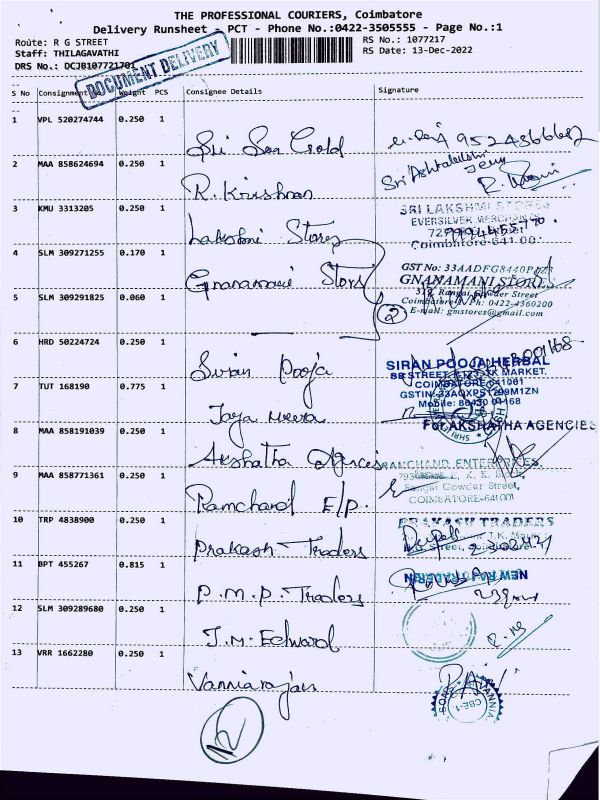 THE PROFESSIONAL COURIERS, Coimbatore
Delivery Runsheet - PCT - Phone No.:0422-3505555 - Page No.:1
Route: R G STREET
RS No.: 1077217
Staff: THILAGAVATHI
RS Date: 13-Dec-2022
DRS No.: DCJ0107721701
DOCUMENT DELIVERY
S No Consignment Weight PCS Consignee Details Signature
1 VPL 520274744 0.250 1
Sri Sea Gold
2 MAA 858624694 0.250 1
R. Krishnan
3 KMU 3313205 0.250 1
Lakshmi Stores
SRI LAKSHMI STORES
EVERSILVER MERCHANTS
Coimbatore-641 001
4 SLM 309271255 0.170 1
Gnanamani Stors
GST No: 33AADFG8440P
GNANAMANI STORES
Rangai Gowder Street
Coimbatore-1, Ph: 0422-4360200
E-mail: gmstores@gmail.com
5 SLM 309291825 0.060 1
2
6 HRD 50224724 0.250 1
Siran Pooja
SIRAN POOJA HERBAL
COIMBATORE 641001
7 TUT 168190 0.775 1
Jaya Meera
8 MAA 858191039 0.250 1
Akshatha Agences
For AKSHATHA AGENCIES
9 MAA 858771361 0.250 1
Ramchand E/P.
RAMCHAND ENTERPRISES,
Rangai Gowder Street,
COIMBATORE-641 001
10 TRP 4838900 0.250 1
Prakash Traders
PRAKASH TRADERS
11 BPT 455267 0.815 1
P.M.P. Traders
12 SLM 309289680 0.250 1
J.M. Edward
13 VRR 1662280 0.250 1
Vanniarajan
12